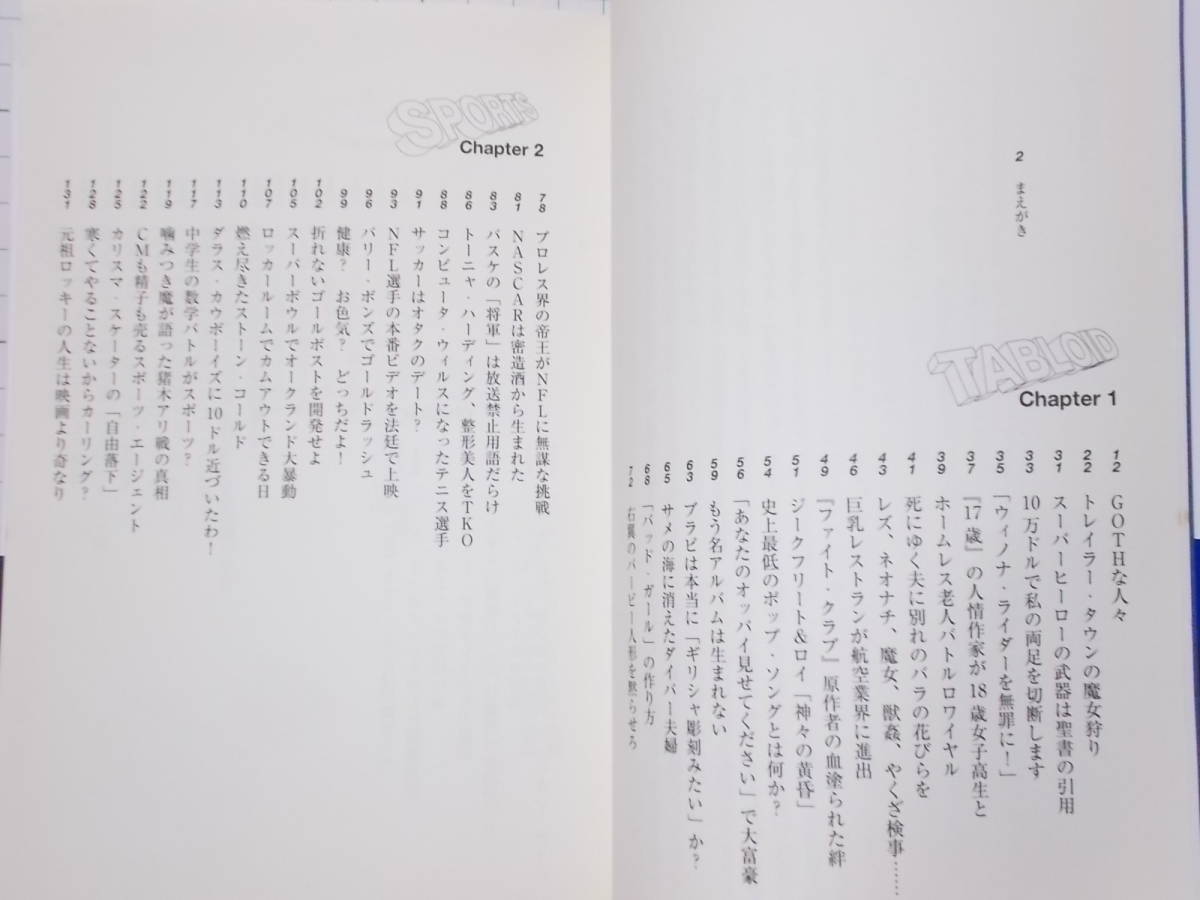 2 まえがき
TABLOID
Chapter 1
12 GOTHな人々
22 トレイラー・タウンの魔女狩り
31 スーパーヒーローの武器は聖書の引用
33 10万ドルで私の両足を切断します
35 「ウィノナ・ライダーを無罪に!」
37 『17歳』の人情作家が18歳女子高生と
39 ホームレス老人バトルロワイヤル
41 死にゆく夫に別れのバラの花びらを
43 レズ、ネオナチ、魔女、獣姦、やくざ検事……
46 巨乳レストランが航空業界に進出
49 『ファイト・クラブ』原作者の血塗られた絆
51 ジークフリート&ロイ「神々の黄昏」
54 史上最低のポップ・ソングとは何か?
56 「あなたのオッパイ見せてください」で大富豪
59 もう名アルバムは生まれない
63 ブラピは本当に「ギリシャ彫刻みたい」か?
65 サメの海に消えたダイバー夫婦
68 「バッド・ガール」の作り方
72 右翼のバービー人形を黙らせろ
SPORTS
Chapter 2
78 プロレス界の帝王がNFLに無謀な挑戦
81 NASCARは密造酒から生まれた
83 バスケの「将軍」は放送禁止用語だらけ
86 トーニャ・ハーディング、整形美人をTKO
88 コンピュータ・ウィルスになったテニス選手
91 サッカーはオタクのデート?
93 NFL選手の本番ビデオを法廷で上映
96 バリー・ボンズでゴールドラッシュ
99 健康? お色気? どっちだよ!
102 折れないゴールポストを開発せよ
105 スーパーボウルでオークランド大暴動
107 ロッカールームでカムアウトできる日
110 燃え尽きたストーン・コールド
113 ダラス・カウボーイズに10ドル近づいたわ!
117 中学生の数学バトルがスポーツ?
119 噛みつき魔が語った猪木アリ戦の真相
122 CMも精子も売るスポーツ・エージェント
125 カリスマ・スケーターの「自由落下」
128 寒くてやることないからカーリング?
131 元祖ロッキーの人生は映画より奇なり